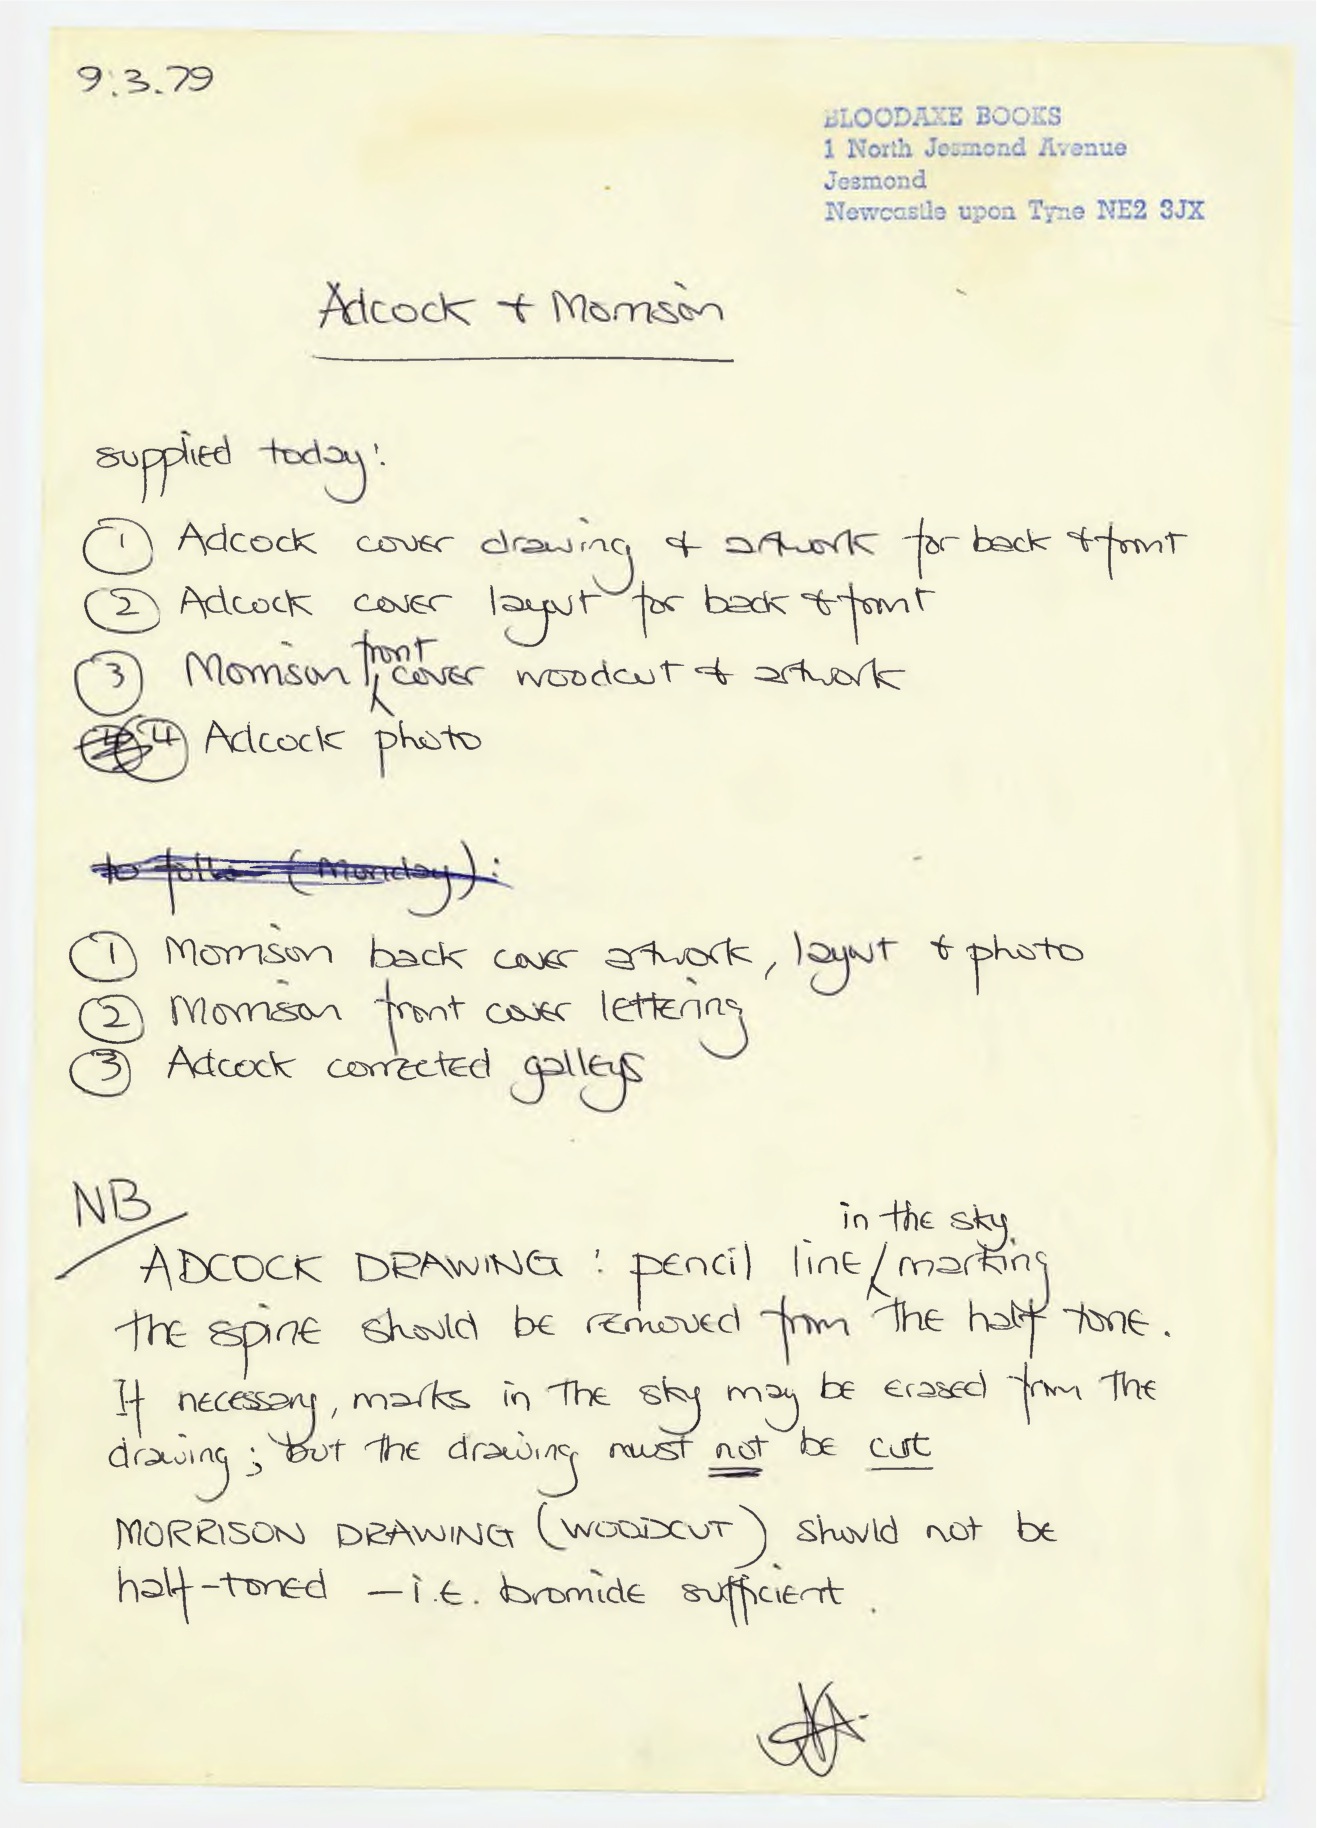 9.3.79
BLOODAXE BOOKS
1 North Jesmond Avenue
Jesmond
Newcastle upon Tyne NE2 3JX
Adcock + Morrison
supplied today:
① Adcock cover drawing + artwork for back + front
② Adcock cover layout for back + front
③ Morrison front cover woodcut + artwork
④ Adcock photo
to follow (Monday):
① Morrison back cover artwork, layout + photo
② Morrison front cover lettering
③ Adcock corrected galleys
NB
in the sky
ADCOCK DRAWING : pencil line marking
the spine should be removed from the half tone.
If necessary, marks in the sky may be erased from the
drawing; but the drawing must not be cut
MORRISON DRAWING (WOODCUT) should not be
half-toned – i.e. bromide sufficient.